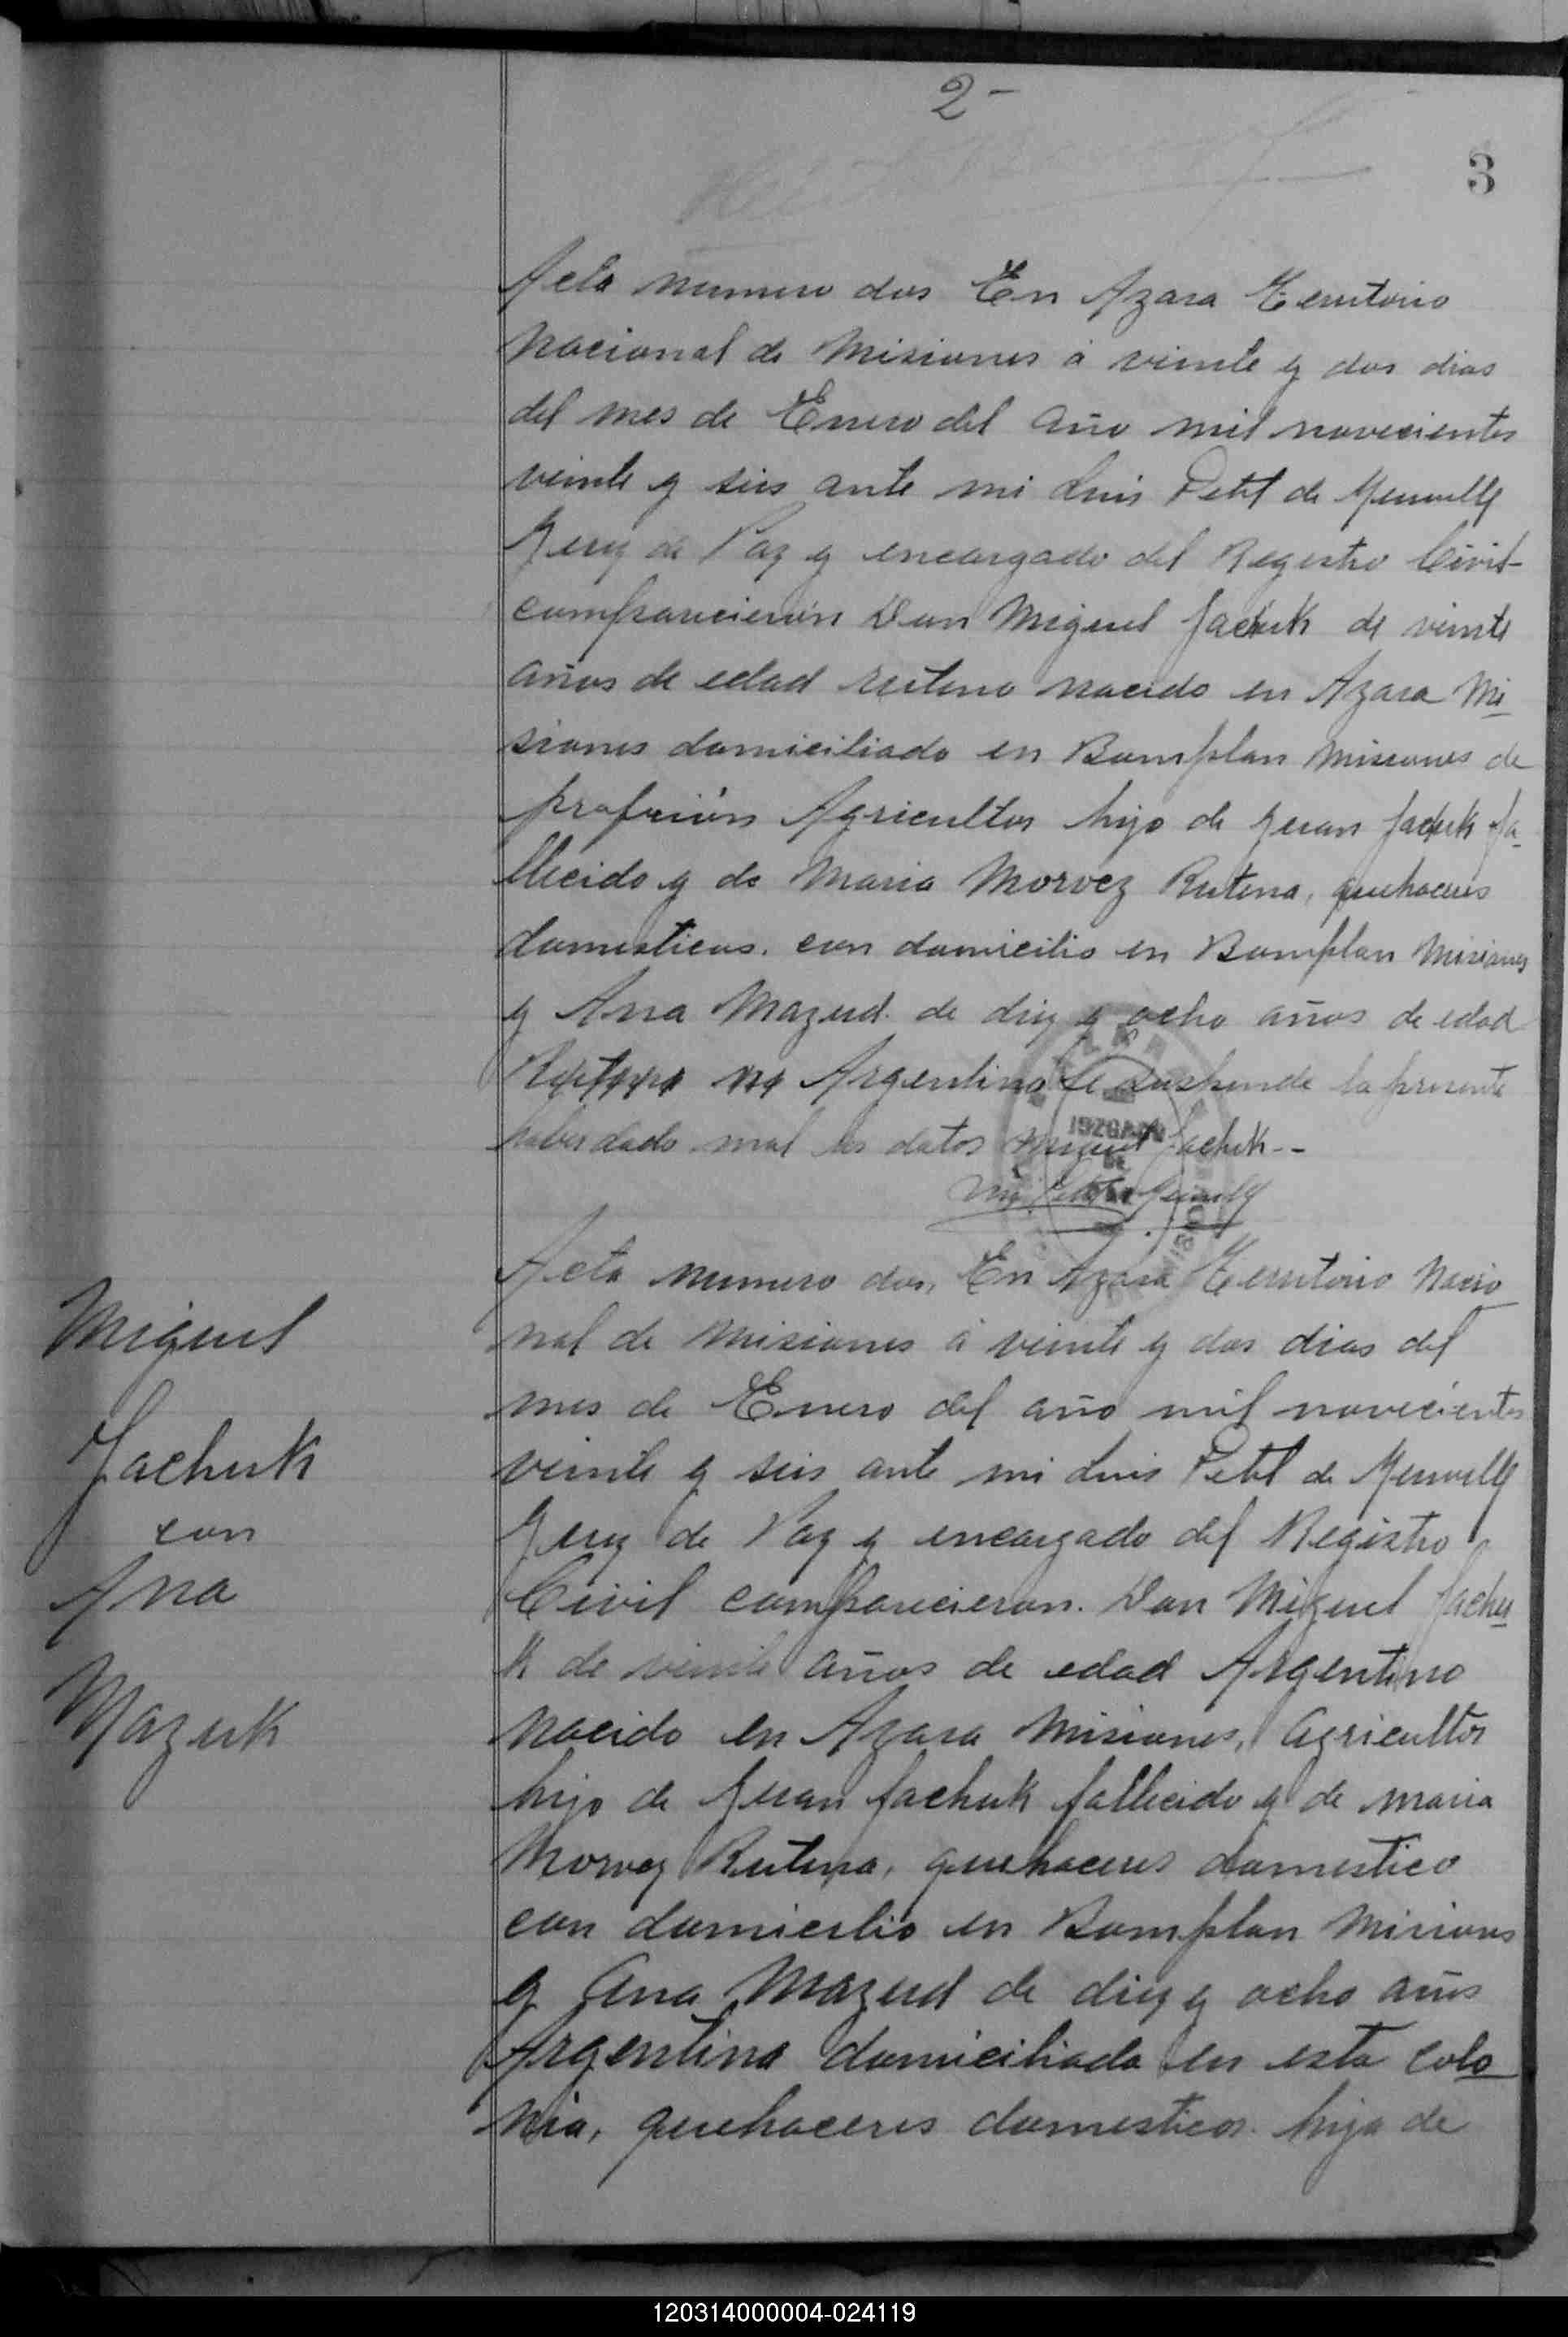 2-
3
Acta numero dos En Azara Territorio
Nacional de Misiones á veinte y dos dias
del mes de Enero del año mil novecientos
veinte y seis ante mi Luis Petit de Meurville
Juez de Paz y encargado del Registro Civil
comparecierón Don Miguel Jachuk de veinte
años de edad ruteno nacido en Azara Mi
siones domiciliado en Bomplan Misiones de
profesión Agricultor hijo de Juan Jachuk fa
llecido y de Maria Morvez Rutena, quehaceres
domesticos. con domicilio en Bomplan Misiones
y Ana Mazud de diez y ocho años de edad
Argentina Se suspende la presente
haber dado mal los datos Miguel Jachuk--
JUZGADO DE
Acta numero dos, En Azara Territorio Nacio
nal de Misiones á veinte y dos dias del
mes de Enero del año mil novecientos
veinte y seis ante mi Luis Petit de Meurville
Juez de Paz y encargado del Registro
Civil comparecieron. Don Miguel Jachu
k de veinte años de edad Argentino
nacido en Azara Misiones, Agricultor
hijo de Juan Jachuk fallecido y de Maria
Morvez Rutena, quehaceres domestico
con domicilio en Bomplan Misiones
y Ana Mazud de diez y ocho años
Argentina domiciliada en esta colo
nia, quehaceres domesticos. hija de
Miguel
Jachuk
con
Ana
Mazuk
120314000004-024119